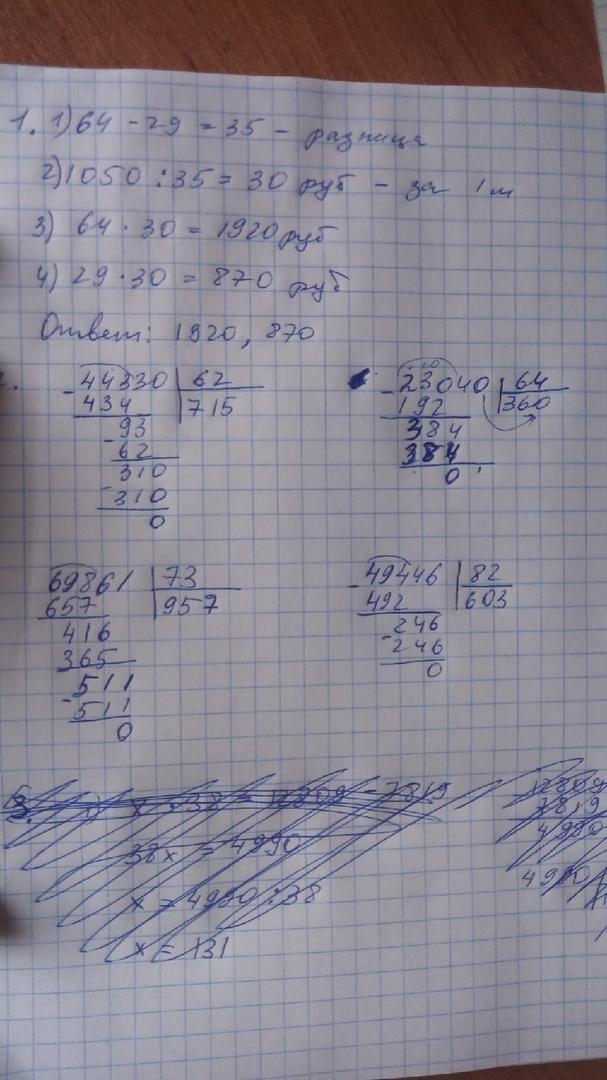 1. 1) 64 - 29 = 35 - разница
2) 1050 : 35 = 30 руб - за 1 м
3) 64 · 30 = 1920 руб
4) 29 · 30 = 870 руб
Ответ: 1920, 870
2.
- 44330 | 62
434 | 715
- 93
62
310
- 310
0
- 23040 | 64
192 | 360
384
384
0
69861 | 73
657 | 957
416
365
- 511
511
0
- 49446 | 82
492 | 603
- 246
246
0
x · 38 = 12809 - 7819
38x = 4990
x = 4990 : 38
x = 131
12809
7819
4990